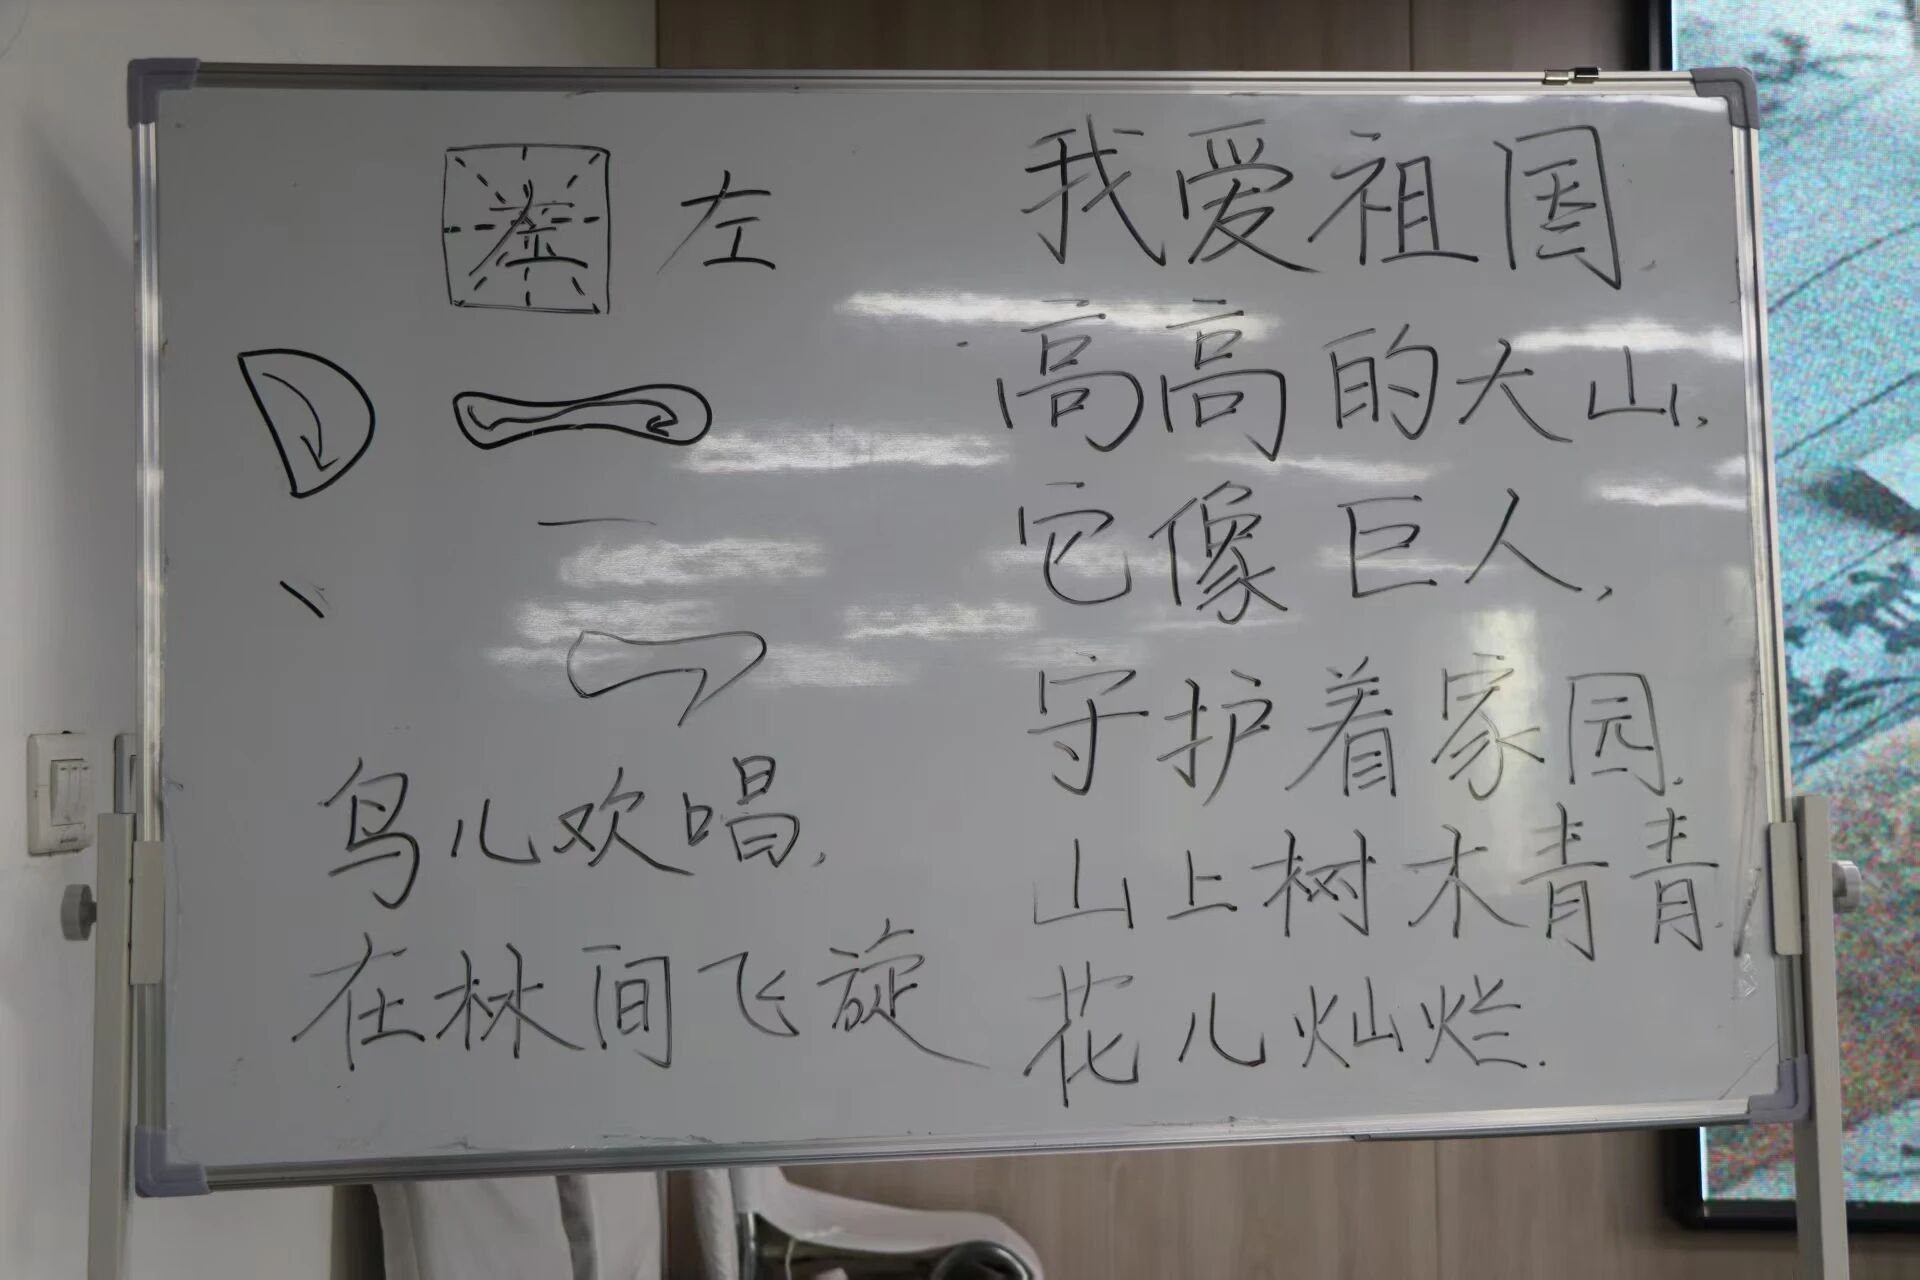 左 左
我爱祖国.
高高的大山,
它像巨人,
守护着家园.
山上树木青青.
花儿灿烂.
鸟儿欢唱,
在林间飞旋